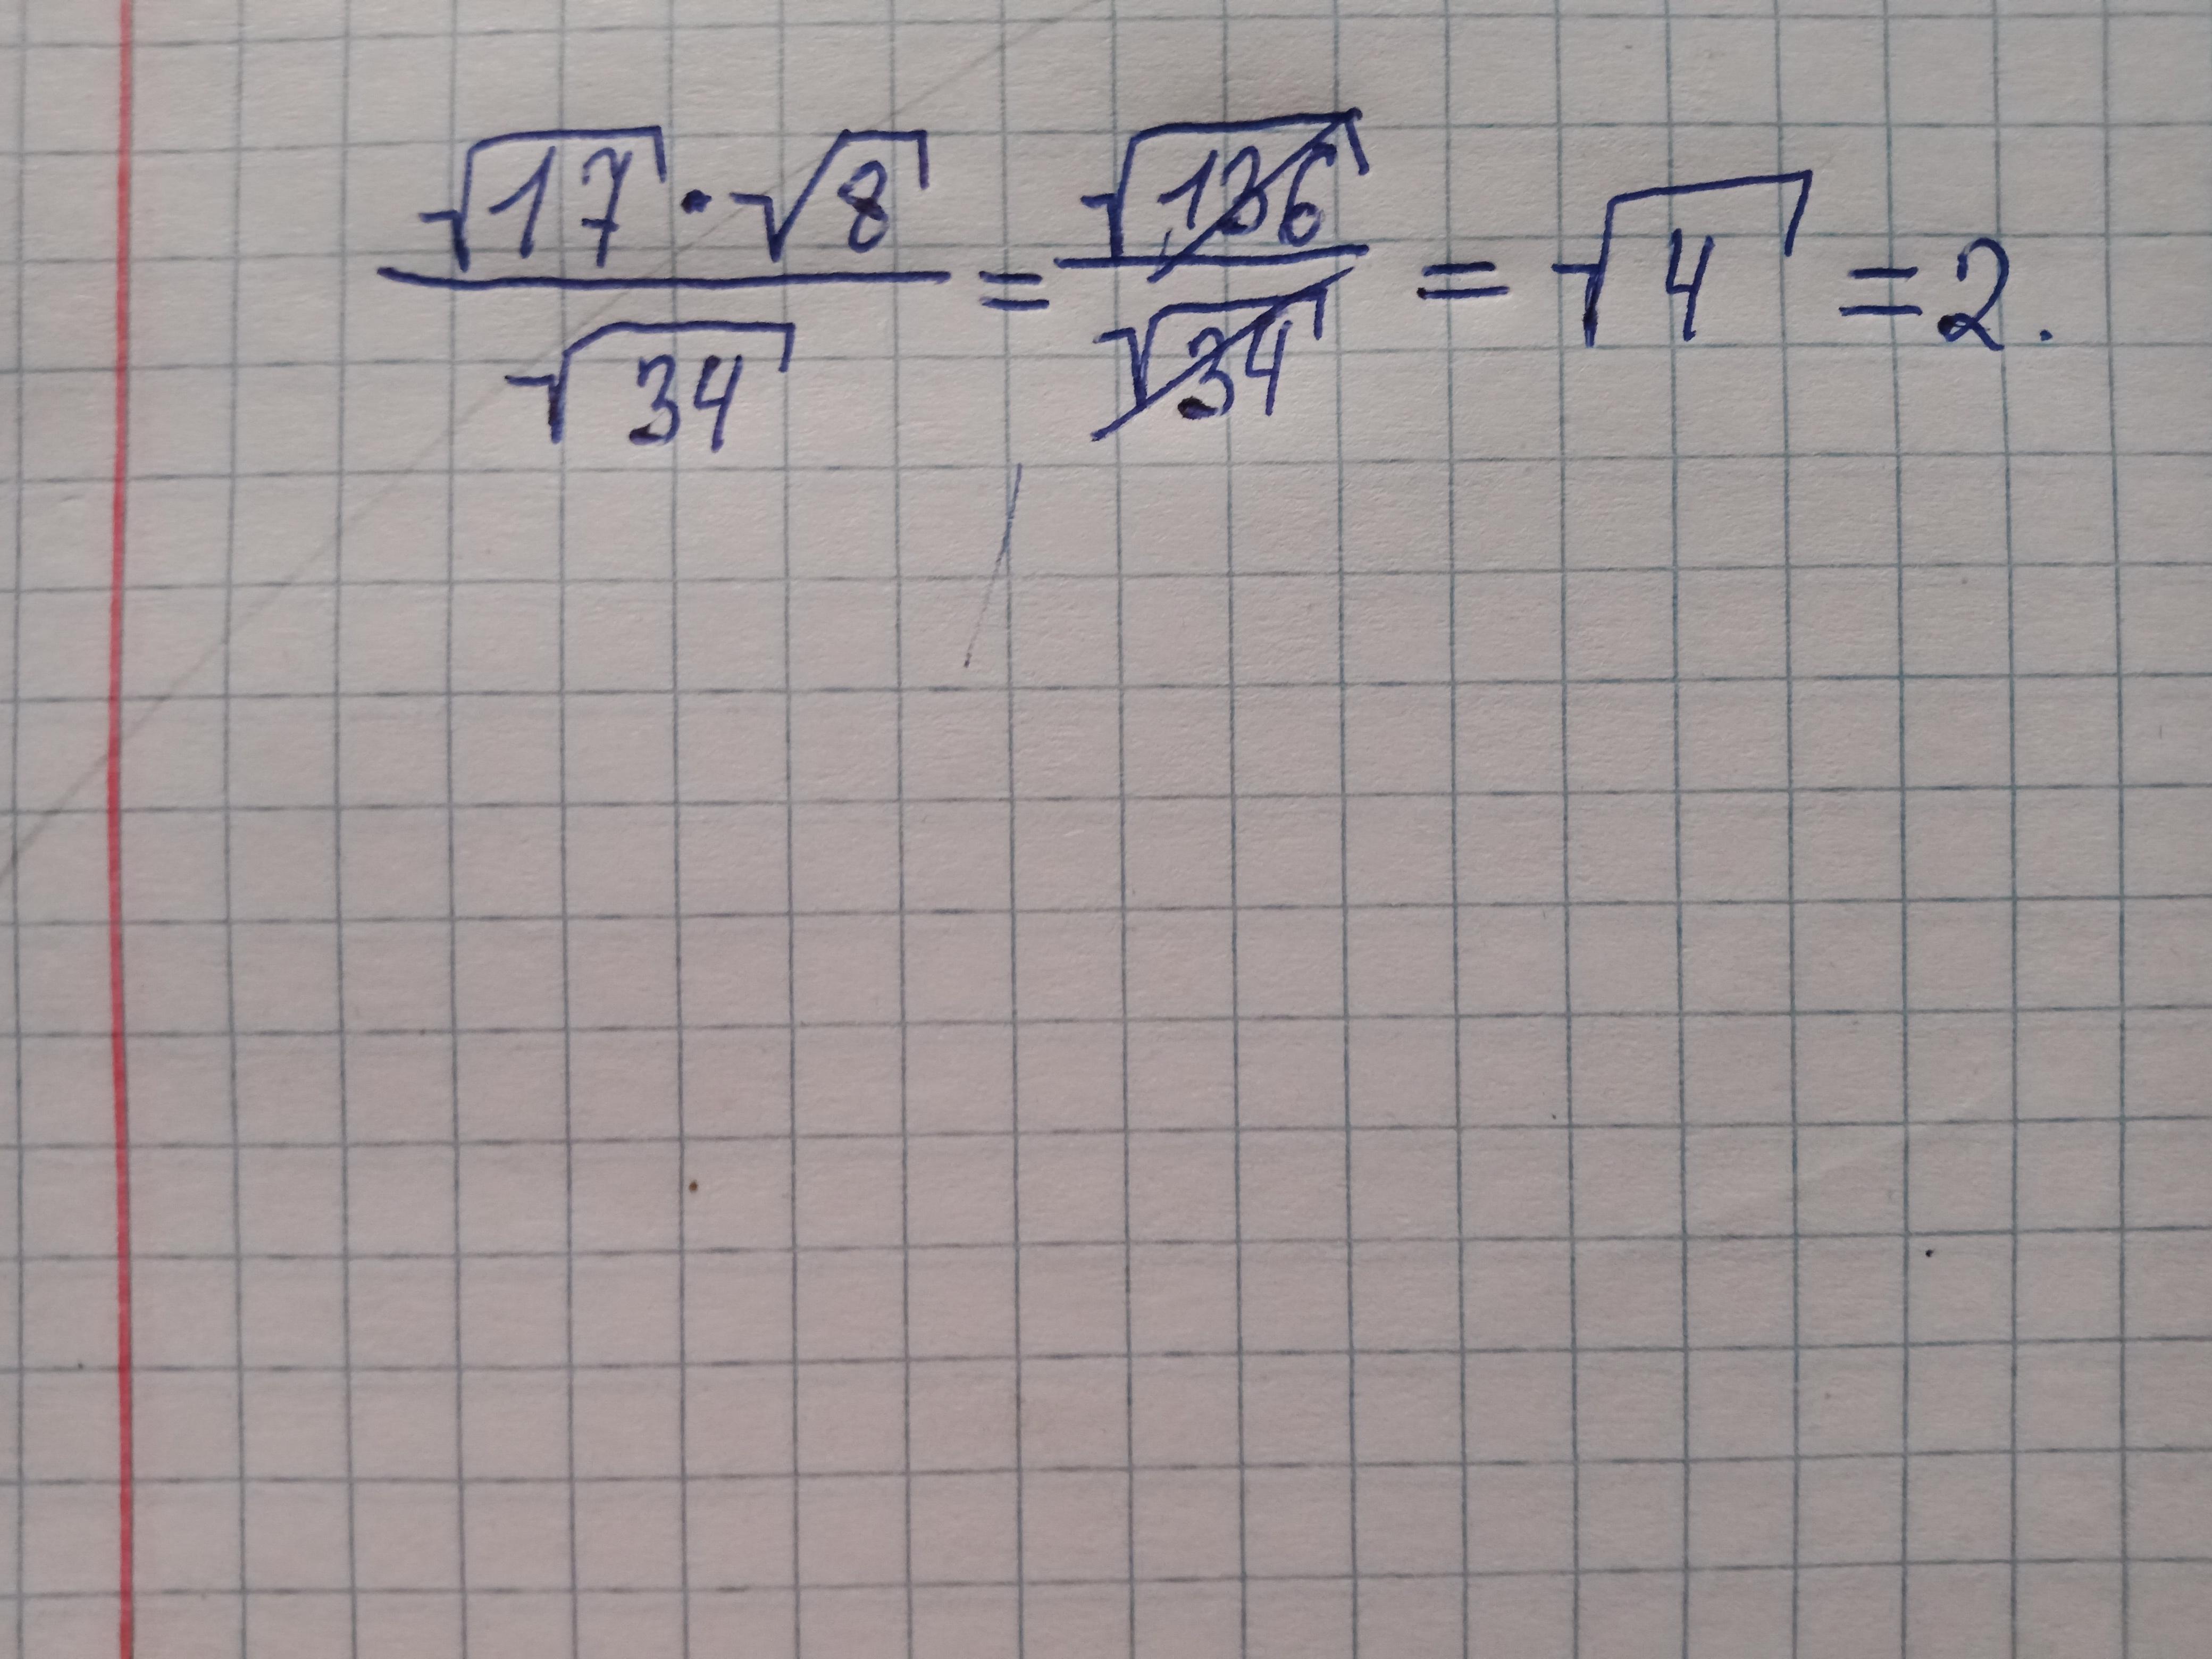 √17 · √8 / √34 = √136 / √34 = √4 = 2.